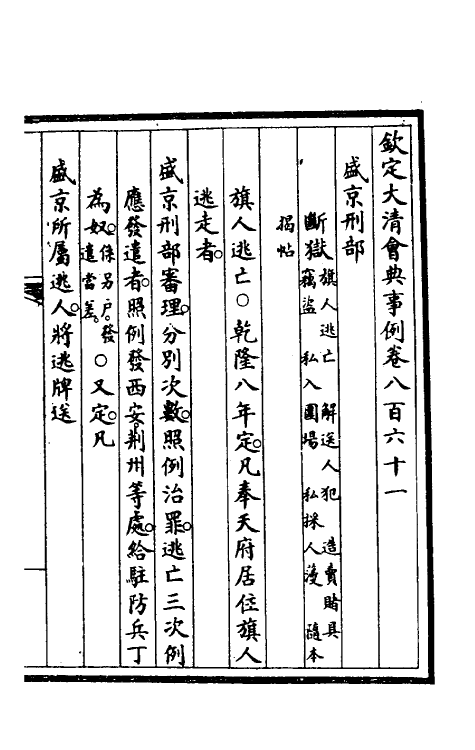 欽定大清會典事例卷八百六十一
盛京刑部
斷獄旗人逃亡 解送人犯 造賣賭具
竊盜 私入圍場 私採人葠 隨本
揭帖
旗人逃亡○乾隆八年定。凡奉天府居住旗人
逃走者。
盛京刑部審理。分別次數。照例治罪。逃亡三次例
應發遣者。照例發西安荆州等處。給駐防兵丁
為奴。係另戶。發
遣當差。○又定。凡
盛京所屬逃人。將逃牌送